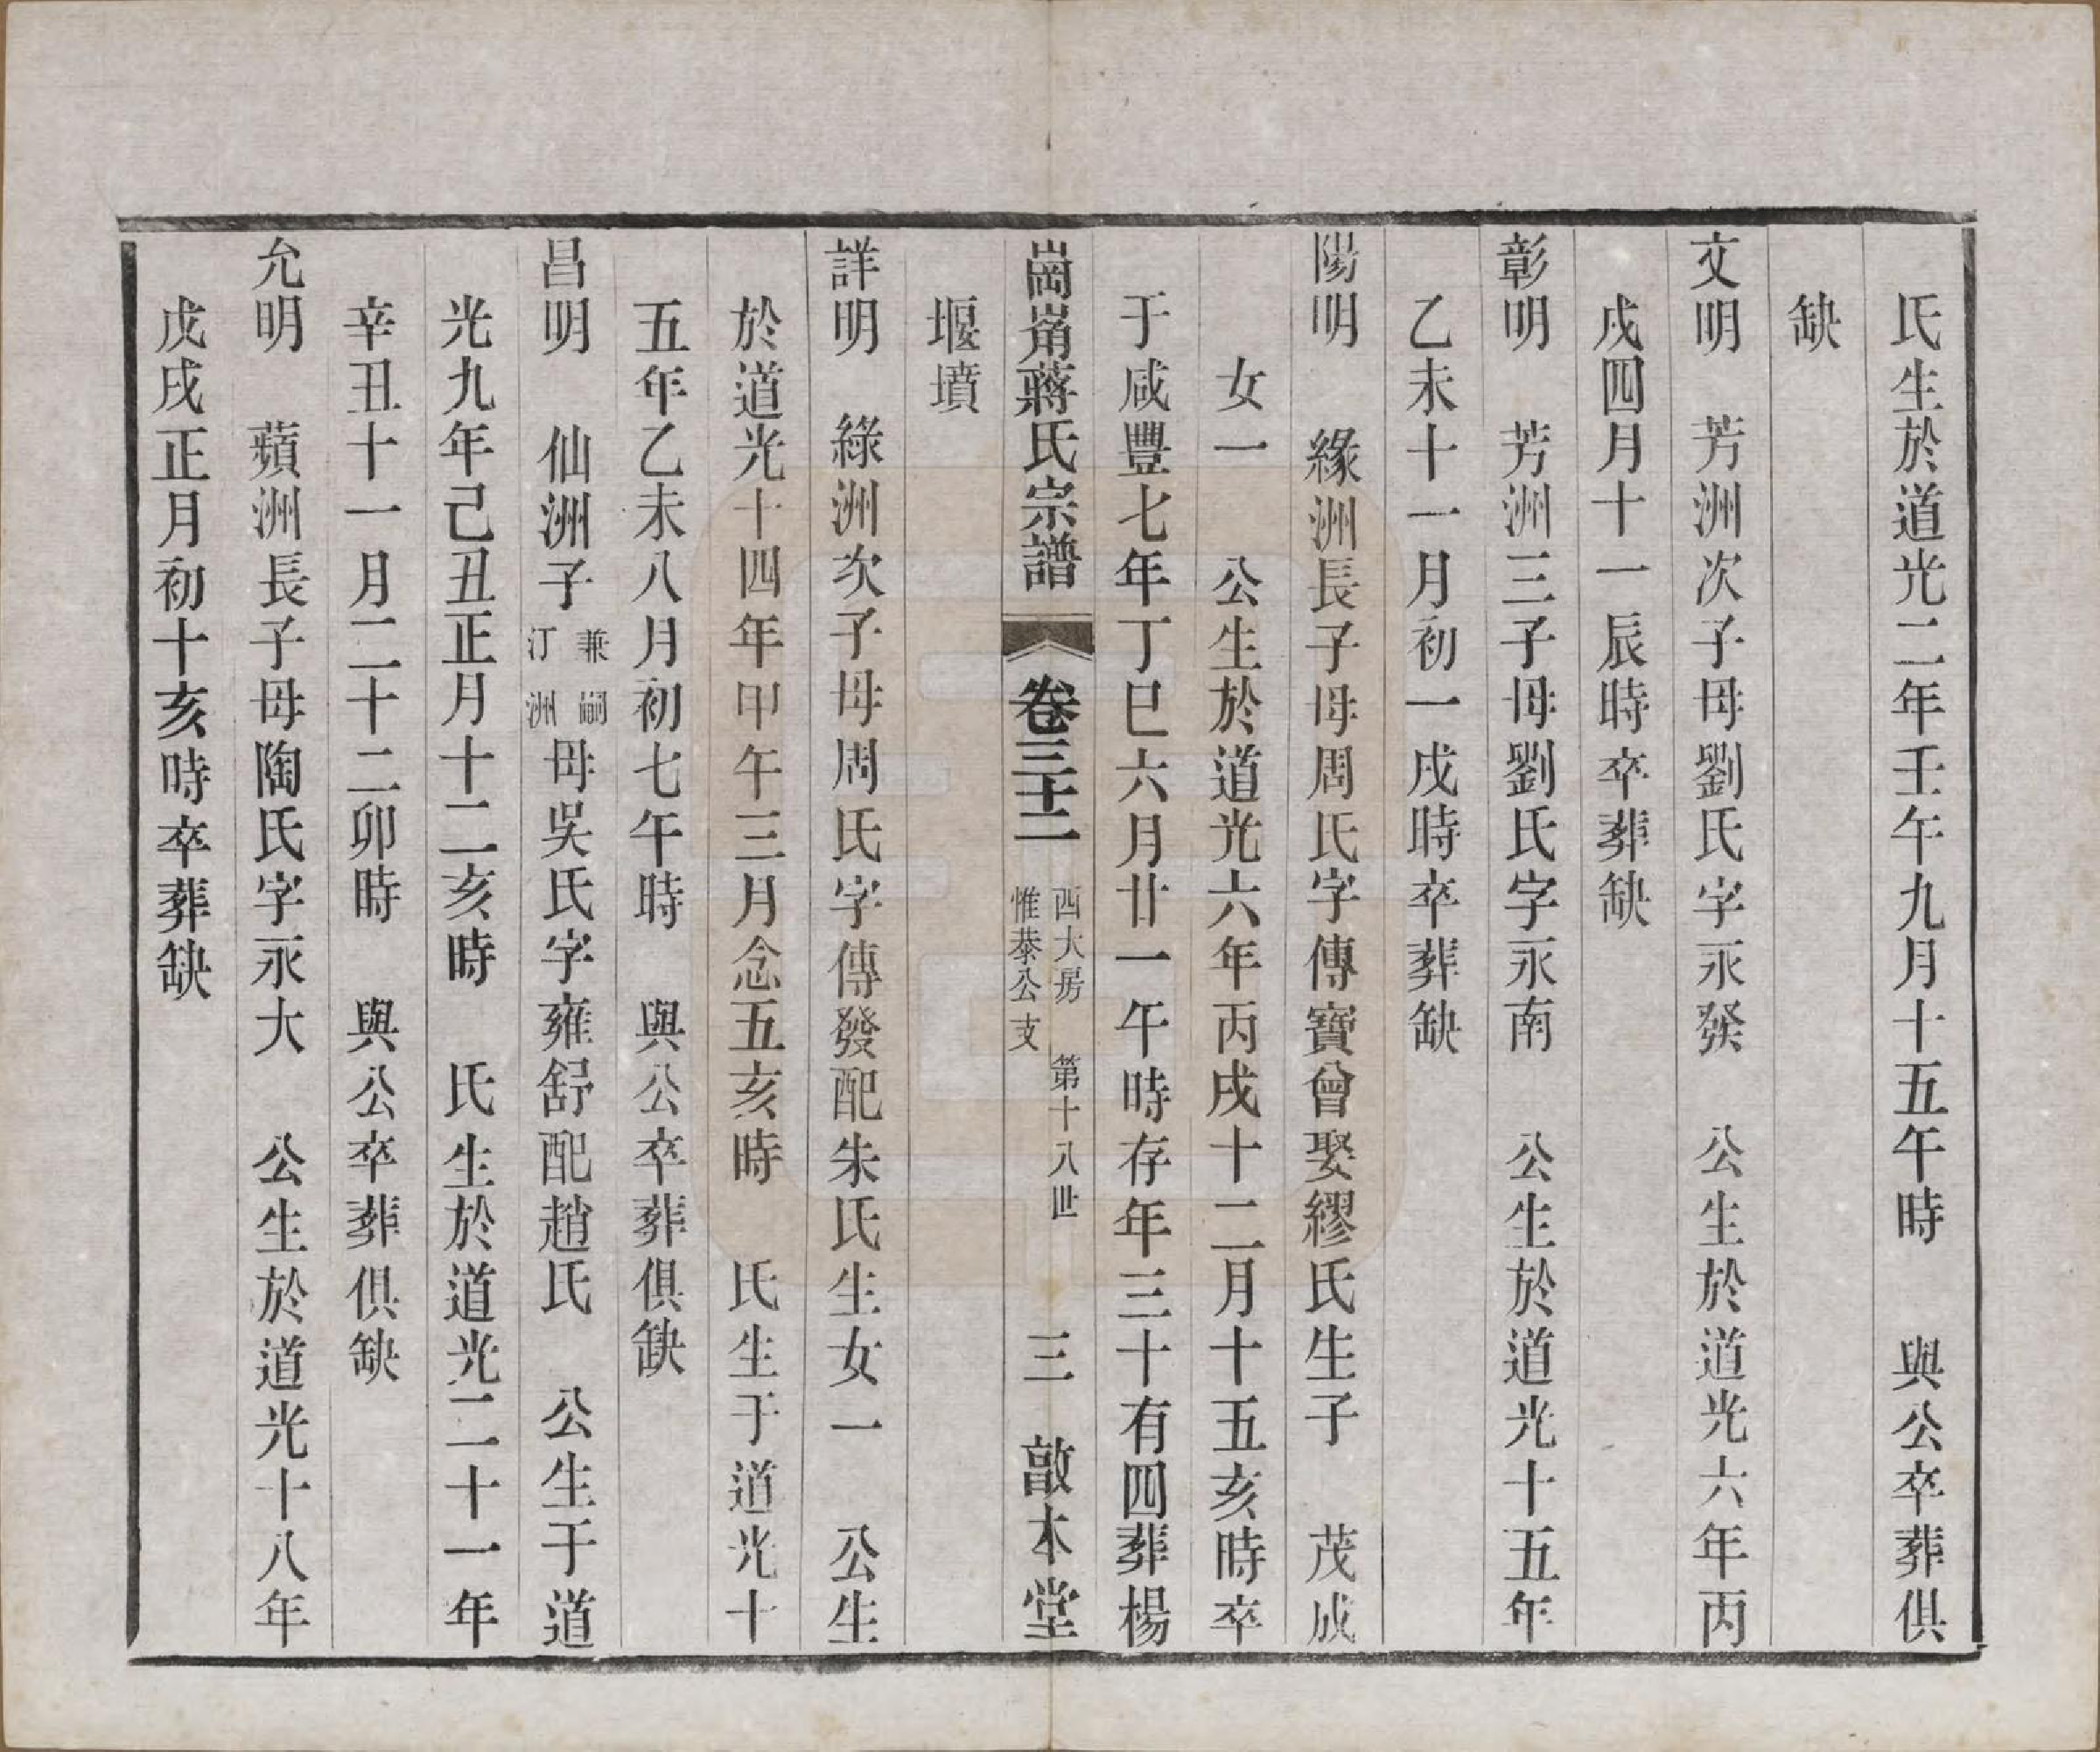 氏生於道光二年壬午九月十五午時　與公卒葬俱
缺
文明　芳洲次子母劉氏字永發　公生於道光六年丙
戌四月十一辰時卒葬缺
彰明　芳洲三子母劉氏字永南　公生於道光十五年
乙未十一月初一戌時卒葬缺
陽明　緣洲長子母周氏字傳寶曾娶繆氏生子　茂成
女一　公生於道光六年丙戌十二月十五亥時卒
于咸豐七年丁巳六月廿一午時存年三十有四葬楊
崗甪蔣氏宗譜　卷三十二　西大房　第十八世　惟恭公支　三　敦本堂
堰墳
詳明　綠洲次子母周氏字傳發配朱氏生女一　公生
於道光十四年甲午三月念五亥時　氏生于道光十
五年乙未八月初七午時　與公卒葬俱缺
昌明　仙洲子兼嗣汀洲母吳氏字雍舒配趙氏　公生于道
光九年己丑正月十二亥時　氏生於道光二十一年
辛丑十一月二十二卯時　與公卒葬俱缺
允明　蘋洲長子母陶氏字永大　公生於道光十八年
戊戌正月初十亥時卒葬缺